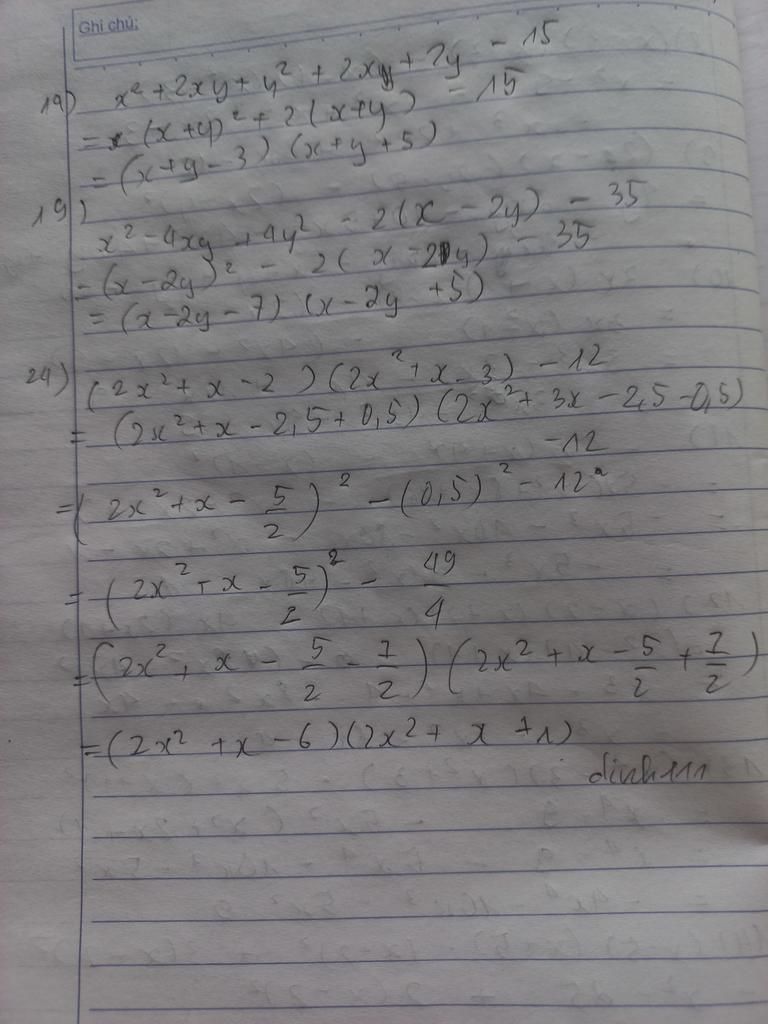 Ghi chú:
19) x² + 2xy + y² + 2xy + 2y - 15
= (x + y)² + 2(x + y) - 15
= (x + y - 3) (x + y + 5)
19)
x² - 4xy + 4y² - 2(x - 2y) - 35
= (x - 2y)² - 2(x - 2y) - 35
= (x - 2y - 7) (x - 2y + 5)
24) (2x² + x - 2) (2x² + x - 3) - 12
= (2x² + x - 2,5 + 0,5) (2x² + 3x - 2,5 - 0,5)
- 12
= (2x² + x - 5/2)² - (0,5)² - 12
= (2x² + x - 5/2)² - 49/4
= (2x² + x - 5/2 - 7/2) (2x² + x - 5/2 + 7/2)
= (2x² + x - 6) (2x² + x + 1)